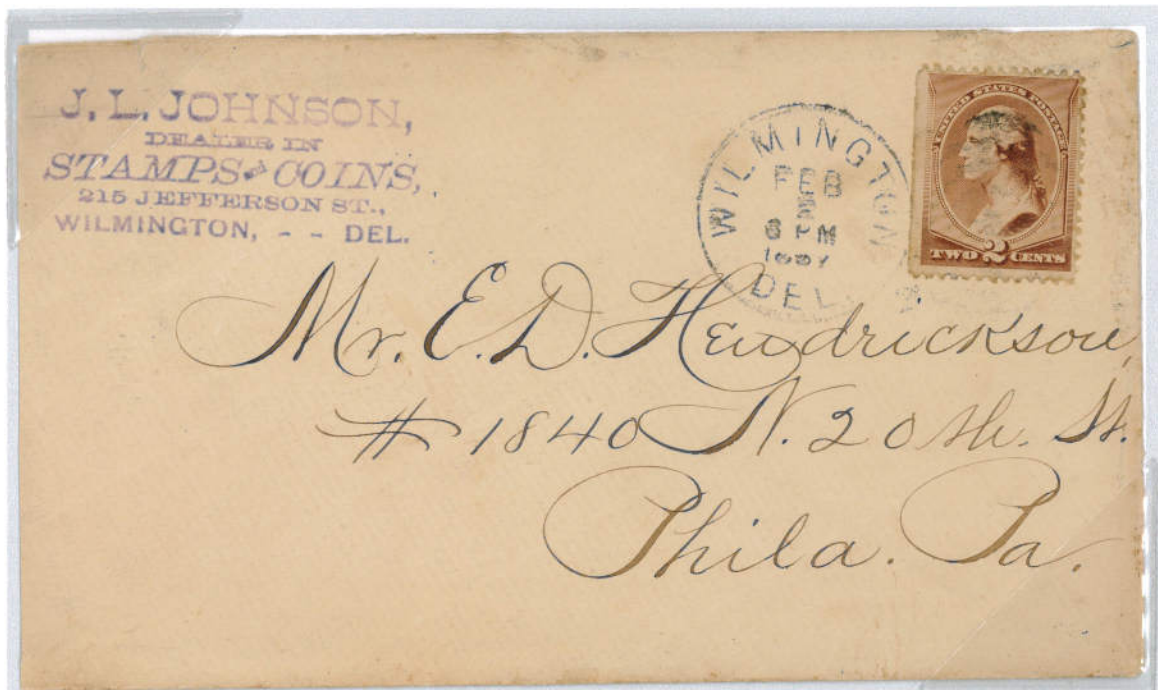 J. L. JOHNSON,
DEALER IN
STAMPS and COINS,
215 JEFFERSON ST.,
WILMINGTON, - - DEL.
WILMINGTON
FEB
6 PM
1887
DEL.
UNITED STATES POSTAGE
TWO 2 CENTS
Mr. E. D. Hendrickson,
# 1840 N. 20th. St.
Phila. Pa.